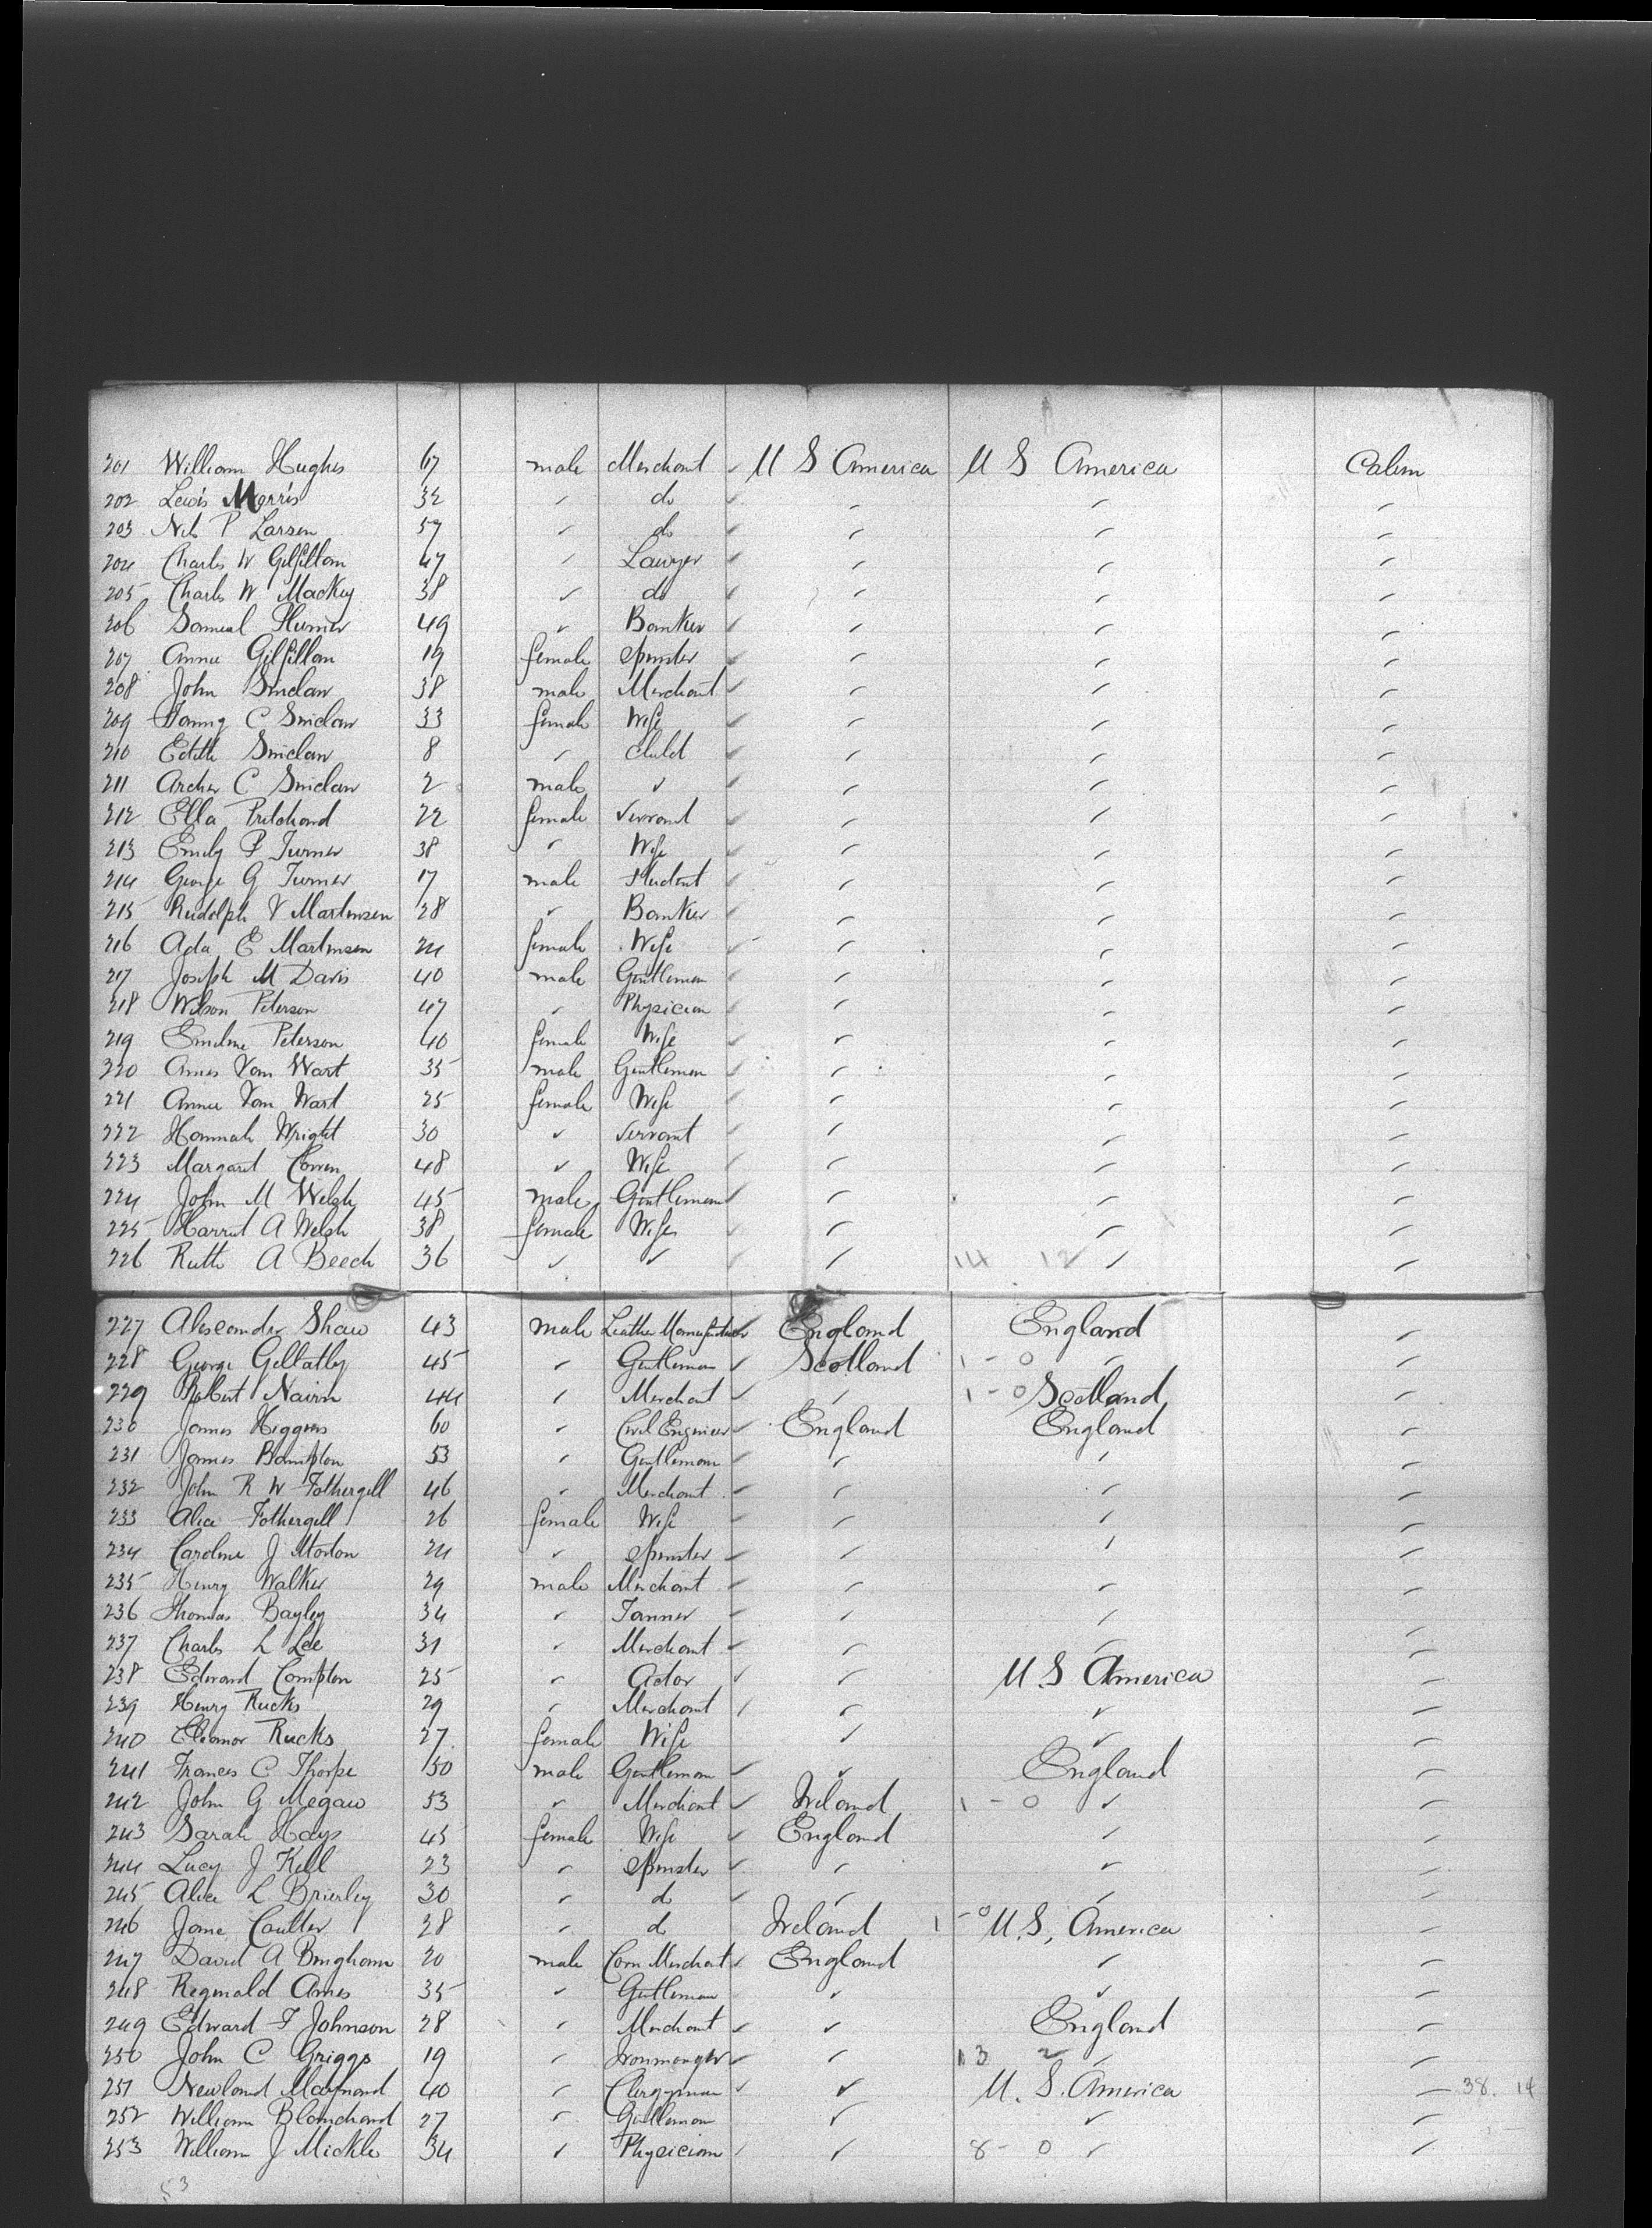 201 William Hughes 67 male Merchant ✓ U S America U S America Cabin
202 Lewis Morris 32 " do ✓ " " "
203 Nels P Larsen 57 " do ✓ " " "
204 Charles W Gilfillan 47 " Lawyer ✓ " " "
205 Charles W Mackey 38 " do ✓ " " "
206 Samuel Plumer 49 " Banker ✓ " " "
207 Annie Gilfillan 19 female Spinster ✓ " " "
208 John Sinclair 38 male Merchant ✓ " " "
209 Fanny C Sinclair 33 female Wife ✓ " " "
210 Edith Sinclair 8 " Child ✓ " " "
211 Archer C Sinclair 2 male " ✓ " " "
212 Ella Pritchard 22 female Servant ✓ " " "
213 Emily P Turner 38 " Wife ✓ " " "
214 George G Turner 17 male Student ✓ " " "
215 Rudolph V Martinsen 28 " Banker ✓ " " "
216 Ada E Martinsen 24 female Wife ✓ " " "
217 Joseph M Davis 40 male Gentleman ✓ " " "
218 Wilson Peterson 47 " Physician ✓ " " "
219 Emeline Peterson 40 female Wife ✓ " " "
220 Ames Van Wart 35 male Gentleman ✓ " " "
221 Annie Van Wart 25 female Wife ✓ " " "
222 Hannah Wright 30 " Servant ✓ " " "
223 Margaret Cowen 48 " Wife ✓ " " "
224 John M Welsh 45 male Gentleman ✓ " " "
225 Harriet A Welsh 38 female Wife ✓ " " "
226 Ruth A Beech 36 " " ✓ " 14 12 " "
227 Alexander Shaw 43 male Leather Manufacturer ✓ England England "
228 George Gellatly 45 " Gentleman ✓ Scotland 1 - 0 " "
229 Robert Nairn 44 " Merchant ✓ " 1 - 0 Scotland "
230 James Higgins 60 " Civil Engineer ✓ England England "
231 James Bampton 53 " Gentleman ✓ " " "
232 John R W Fothergill 46 " Merchant ✓ " " "
233 Alice Fothergill 26 female Wife ✓ " " "
234 Caroline J Morton 24 " Spinster ✓ " " "
235 Henry Walker 29 male Merchant ✓ " " "
236 Thomas Bayley 34 " Tanner ✓ " " "
237 Charles L Lee 31 " Merchant ✓ " " "
238 Edward Compton 25 " Actor ✓ " U.S America "
239 Henry Rucks 29 " Merchant ✓ " " "
240 Eleanor Rucks 27 female Wife " " "
241 Frances C Thorpe 50 male Gentleman ✓ " England "
242 John G Megaw 53 " Merchant ✓ Ireland 1 - 0 " "
243 Sarah Hays 45 female Wife ✓ England " "
244 Lucy J Kell 23 " Spinster ✓ " " "
245 Alice L Brierley 30 " do ✓ " " "
246 Jane Coulter 28 " do Ireland 1 - 0 U.S. America "
247 David A Bingham 20 male Corn Merchant ✓ England " "
248 Reginald Ames 35 " Gentleman " " "
249 Edward F Johnson 28 " Merchant ✓ " England "
250 John C Griggs 19 " Ironmonger ✓ " 13 2 " "
251 Newland Maynard 40 " Clergyman ✓ " U.S. America " 38. 14
252 William Blanchard 27 " Gentleman " " "
253 William J Mickle 34 " Physician ✓ " 8 - 0 " "
53